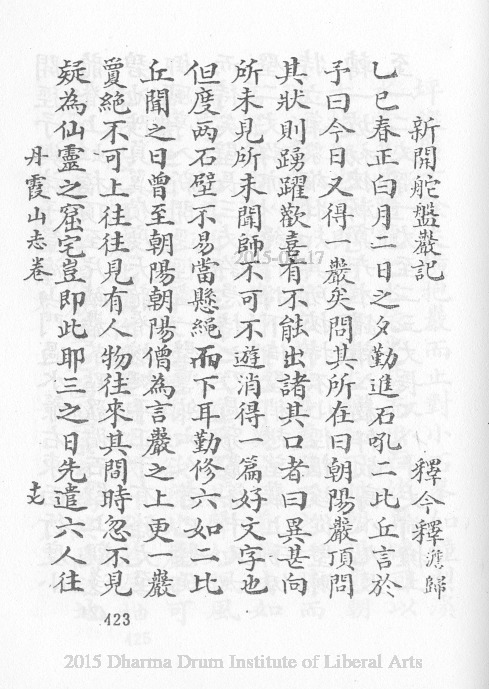 新開舵盤巖記　釋今釋澹歸
乙巳春正白月二日之夕勤進石吼二比丘言於
予曰今日又得一巖矣問其所在曰朝陽巖頂問
其狀則踴躍歡喜有不能出諸其口者曰異甚向
所未見所未聞師不可不遊消得一篇好文字也
但度两石壁不易當懸繩而下耳勤修六如二比
丘聞之曰曾至朝陽朝陽僧為言巖之上更一巖
敻絕不可上往往見有人物往來其間時忽不見
疑為仙靈之窟宅豈即此耶三之日先遣六人往
丹霞山志卷
423
2015 Dharma Drum Institute of Liberal Arts